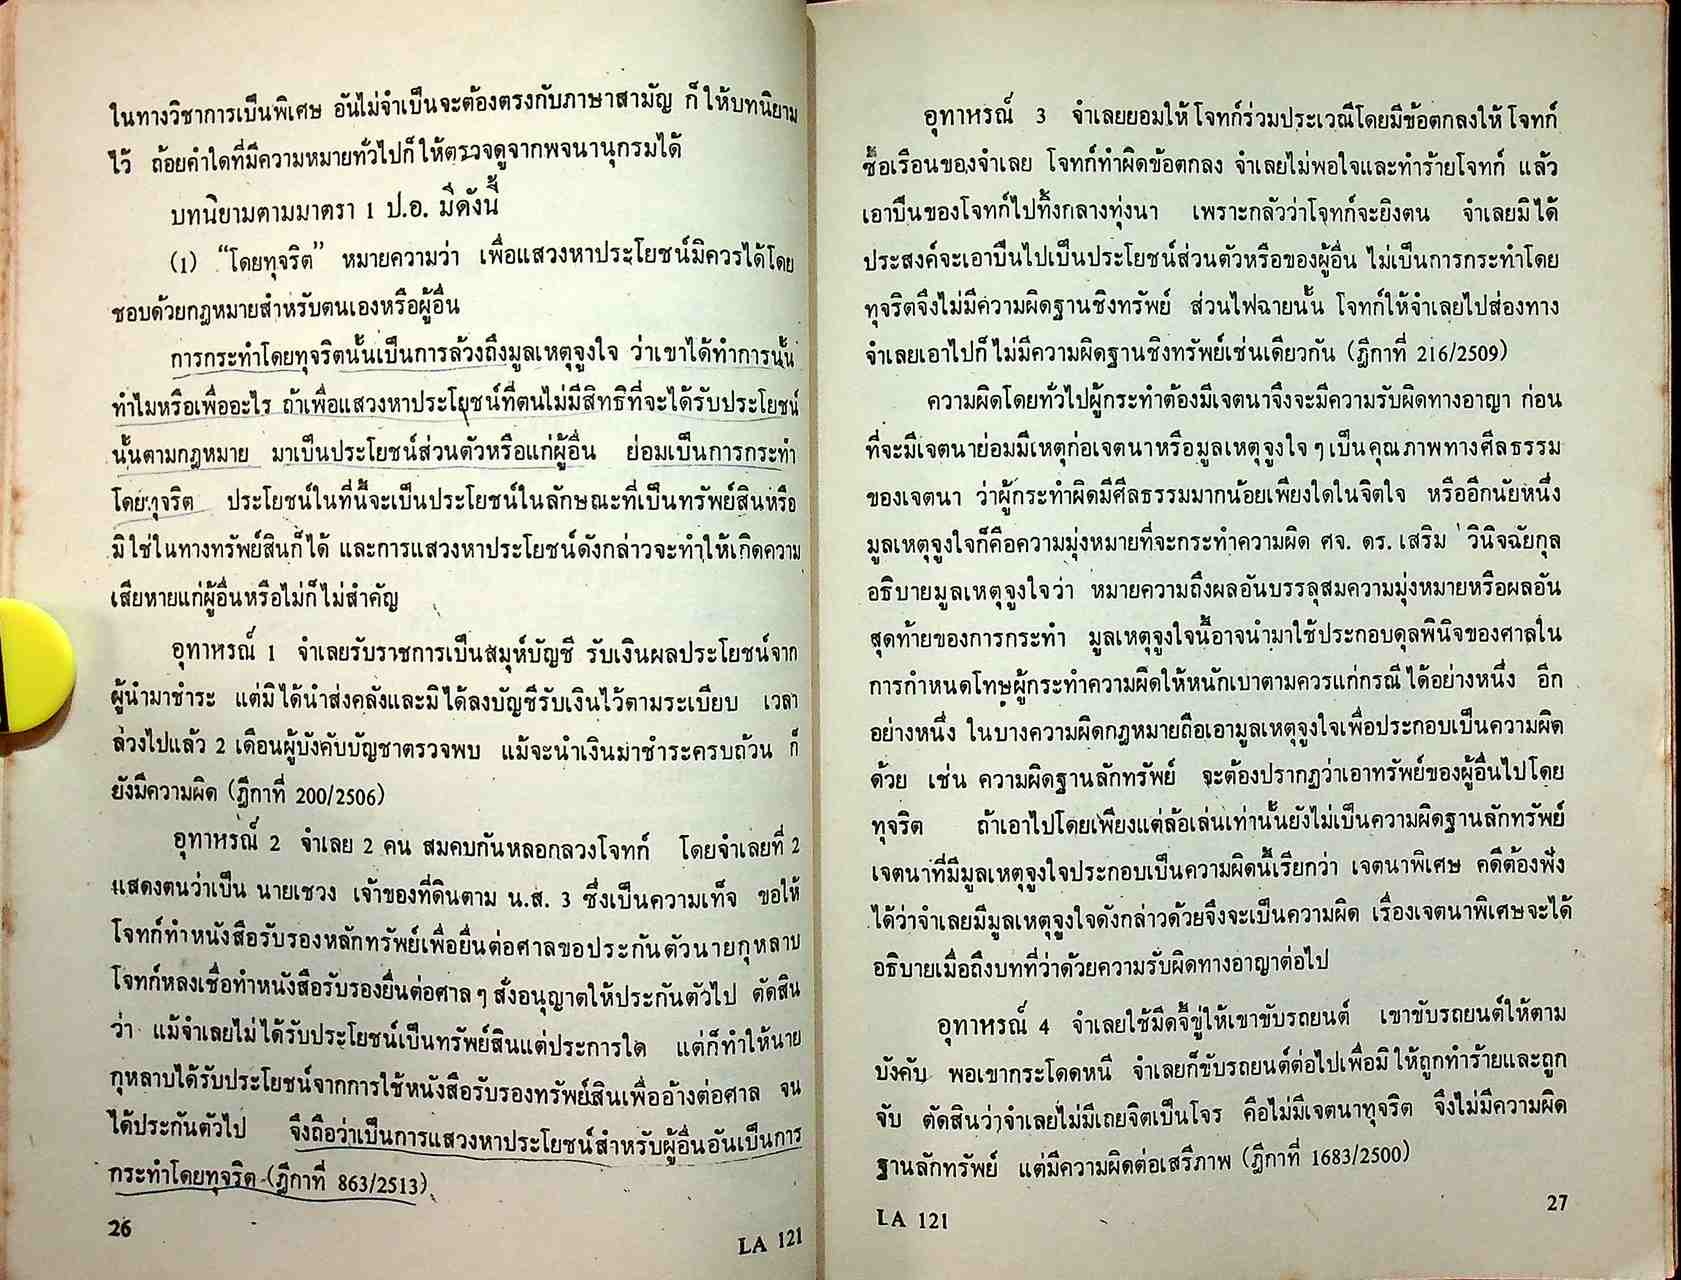 ในทางวิชาการเป็นพิเศษ อันไม่จำเป็นจะต้องตรงกับภาษาสามัญ ก็ให้บทนิยาม
ไว้ ถ้อยคำใดที่มีความหมายทั่วไปก็ให้ตรวจดูจากพจนานุกรมได้
บทนิยามตามมาตรา 1 ป.อ. มีดังนี้
(1) “โดยทุจริต” หมายความว่า เพื่อแสวงหาประโยชน์มิควรได้โดย
ชอบด้วยกฎหมายสำหรับตนเองหรือผู้อื่น
การกระทำโดยทุจริตนั้นเป็นการล้วงถึงมูลเหตุจูงใจ ว่าเขาได้ทำการนั้น
ทำไมหรือเพื่ออะไร ถ้าเพื่อแสวงหาประโยชน์ที่ตนไม่มีสิทธิที่จะได้รับประโยชน์
นั้นตามกฎหมาย มาเป็นประโยชน์ส่วนตัวหรือแก่ผู้อื่น ย่อมเป็นการกระทำ
โดยทุจริต ประโยชน์ในที่นี้จะเป็นประโยชน์ในลักษณะที่เป็นทรัพย์สินหรือ
มิใช่ในทางทรัพย์สินก็ได้ และการแสวงหาประโยชน์ดังกล่าวจะทำให้เกิดความ
เสียหายแก่ผู้อื่นหรือไม่ก็ไม่สำคัญ
อุทาหรณ์ 1 จำเลยรับราชการเป็นสมุห์บัญชี รับเงินผลประโยชน์จาก
ผู้นำมาชำระ แต่มิได้นำส่งคลังและมิได้ลงบัญชีรับเงินไว้ตามระเบียบ เวลา
ล่วงไปแล้ว 2 เดือนผู้บังคับบัญชาตรวจพบ แม้จะนำเงินมาชำระครบถ้วน ก็
ยังมีความผิด (ฎีกาที่ 200/2506)
อุทาหรณ์ 2 จำเลย 2 คน สมคบกันหลอกลวงโจทก์ โดยจำเลยที่ 2
แสดงตนว่าเป็น นายเชวง เจ้าของที่ดินตาม น.ส. 3 ซึ่งเป็นความเท็จ ขอให้
โจทก์ทำหนังสือรับรองหลักทรัพย์เพื่อยื่นต่อศาลขอประกันตัวนายกุหลาบ
โจทก์หลงเชื่อทำหนังสือรับรองยื่นต่อศาล ๆ สั่งอนุญาตให้ประกันตัวไป ตัดสิน
ว่า แม้จำเลยไม่ได้รับประโยชน์เป็นทรัพย์สินแต่ประการใด แต่ก็ทำให้นาย
กุหลาบได้รับประโยชน์จากการใช้หนังสือรับรองทรัพย์สินเพื่ออ้างต่อศาล จน
ได้ประกันตัวไป จึงถือว่าเป็นการแสวงหาประโยชน์สำหรับผู้อื่นอันเป็นการ
กระทำโดยทุจริต (ฎีกาที่ 863/2513)
26
LA 121
อุทาหรณ์ 3 จำเลยยอมให้โจทก์ร่วมประเวณีโดยมีข้อตกลงให้โจทก์
ซื้อเรือนของจำเลย โจทก์ทำผิดข้อตกลง จำเลยไม่พอใจและทำร้ายโจทก์ แล้ว
เอาปืนของโจทก์ไปทิ้งกลางทุ่งนา เพราะกลัวว่าโจทก์จะยิงตน จำเลยมิได้
ประสงค์จะเอาปืนไปเป็นประโยชน์ส่วนตัวหรือของผู้อื่น ไม่เป็นการกระทำโดย
ทุจริตจึงไม่มีความผิดฐานชิงทรัพย์ ส่วนไฟฉายนั้น โจทก์ให้จำเลยไปส่องทาง
จำเลยเอาไปก็ไม่มีความผิดฐานชิงทรัพย์เช่นเดียวกัน (ฎีกาที่ 216/2509)
ความผิดโดยทั่วไปผู้กระทำต้องมีเจตนาจึงจะมีความรับผิดทางอาญา ก่อน
ที่จะมีเจตนาย่อมมีเหตุก่อเจตนาหรือมูลเหตุจูงใจ ๆ เป็นคุณภาพทางศีลธรรม
ของเจตนา ว่าผู้กระทำผิดมีศีลธรรมมากน้อยเพียงใดในจิตใจ หรืออีกนัยหนึ่ง
มูลเหตุจูงใจก็คือความมุ่งหมายที่จะกระทำความผิด ศจ. ดร. เสริม วินิจฉัยกุล
อธิบายมูลเหตุจูงใจว่า หมายความถึงผลอันบรรลุสมความมุ่งหมายหรือผลอัน
สุดท้ายของการกระทำ มูลเหตุจูงใจนี้อาจนำมาใช้ประกอบดุลพินิจของศาลใน
การกำหนดโทษผู้กระทำความผิดให้หนักเบาตามควรแก่กรณีได้อย่างหนึ่ง อีก
อย่างหนึ่ง ในบางความผิดกฎหมายถือเอามูลเหตุจูงใจเพื่อประกอบเป็นความผิด
ด้วย เช่น ความผิดฐานลักทรัพย์ จะต้องปรากฏว่าเอาทรัพย์ของผู้อื่นไปโดย
ทุจริต ถ้าเอาไปโดยเพียงแต่ล้อเล่นเท่านั้นยังไม่เป็นความผิดฐานลักทรัพย์
เจตนาที่มีมูลเหตุจูงใจประกอบเป็นความผิดนี้เรียกว่า เจตนาพิเศษ คดีต้องฟัง
ได้ว่าจำเลยมีมูลเหตุจูงใจดังกล่าวด้วยจึงจะเป็นความผิด เรื่องเจตนาพิเศษจะได้
อธิบายเมื่อถึงบทที่ว่าด้วยความรับผิดทางอาญาต่อไป
อุทาหรณ์ 4 จำเลยใช้มีดจี้ขู่ให้เขาขับรถยนต์ เขาขับรถยนต์ให้ตาม
บังคับ พอเขากระโดดหนี จำเลยก็ขับรถยนต์ต่อไปเพื่อมิให้ถูกทำร้ายและถูก
จับ ตัดสินว่าจำเลยไม่มีเถยจิตเป็นโจร คือไม่มีเจตนาทุจริต จึงไม่มีความผิด
ฐานลักทรัพย์ แต่มีความผิดต่อเสรีภาพ (ฎีกาที่ 1683/2500)
LA 121
27